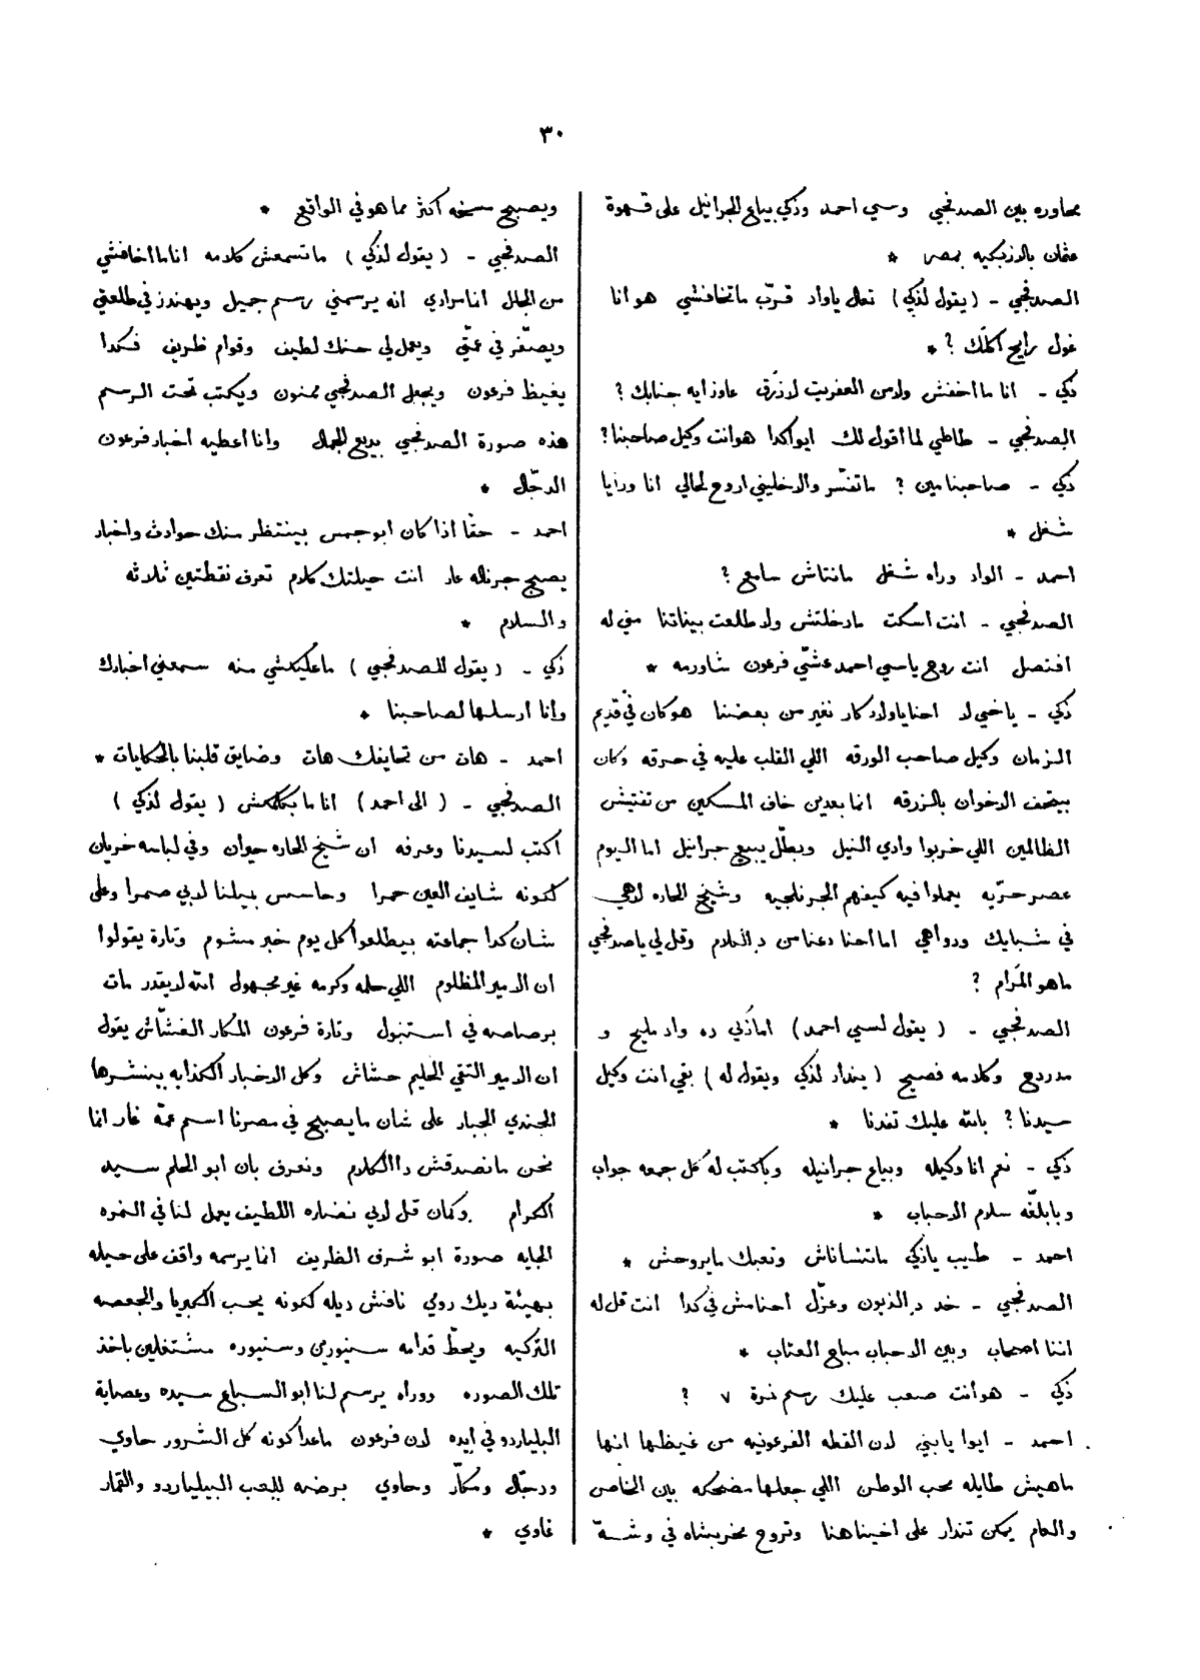 ٣٠
محاوره بين الصدفجي وسي احمد وزكي بياع الجرانيل على قهوة
عثمان بالازبكيه بمصر *
الصدفجي - (يقول لزكي) تعال ياواد قرّب ماتخافشي هو انا
غول رايح آكلك ؟ *
زكي - انا ما اخفش ولا من العفريت لازرق عاوز ايه جنابك ؟
الصدفجي - طاطي لما اقول لك ايوا كدا هوانت وكيل صاحبنا ؟
زكي - صاحبنا مين ؟ ماتفسّر والا خليني اروح لحالي انا ورايا
شغل *
احمد - الواد وراه شغل مانتاش سامع ؟
الصدفجي - انت اسكت مادخلتش ولا طلعت بيناتنا مني له
افتصل انت روح ياسي احمد عشّي فرعون شاورمه *
زكي - ياخي لا احنا ياولاد كار نغير من بعضنا هو كان في قديم
الزمان وكيل صاحب الورقه اللي القلب عليه في حرقه وكان
بيتحف الاخوان بالزرقه انما بعدين خاف المسكين من تفتيش
الظالمين اللي خربوا وادي النيل وبطّل يبيع جرانيل اما اليوم
عصر حرّيه يعملوا فيه كيفهم الجرنلجيه وشيخ الحاره لاهي
في شبايك ودواهي اما احنا دعنا من د الكلام وقل لي ياصدفجي
ماهو المَرام ؟
الصدفجي - (يقول لسي احمد) اما زكي ده واد مليح و
مدردح وكلامه فصيح (يندار لزكي ويقول له) بقي انت وكيل
سيدنا ؟ بالله عليك تفدنا *
زكي - نعم انا وكيله وبياع جرانيله وباكتب له كل جمعه جواب
وبابلغّه سلام الاحباب *
احمد - طيب يازكي ماتنساناش وتعبك مايروحش *
الصدفجي - خد د الزبون وعزّل احنا مش في كدا انت قل له
اننا اصحاب وبين الاحباب مباح العتاب *
زكي - هوأنت صعب عليك رسم نمرة ٧ ؟
احمد - ايوا يابني لان القطه الفرعونيه من غيظها انها
ماهيش طايله محب الوطن اللي جعلها مضحكه بين الخاص
والعام يمكن تندار على اخينا هنا وتروح مخربشاه في وشهّ
ويصبح مسخه أكثر مما هو في الواقع *
الصدفجي - (يقول لزكي) ماتسمعش كلامه انا ما اخافشي
من الجلل انا مرادي انه يرسمني رسم جميل ويهندز في طلعتي
ويصغّر في عمّتي ويعمل لي حنك لطيف وقوام ظريف فكدا
يغيظ فرعون ويجعل الصدفجي ممنون ويكتب تحت الرسم
هذه صورة الصدفجي بديع الجمال وانا أعطيه أخبار فرعون
الدجّال *
احمد - حقّا اذا كان ابو جمس بينتظر منك حوادث واخبار
يصبح جرناله عار انت حيلتك كلام تعرف نقطتين ثلاثه
والسلام *
زكي - (يقول للصدفجي) ماعليكشي منه سمعني اخبارك
وانا ارسلها لصاحبنا *
احمد - هات من تحايفك هات وضايق قلبنا بالحكايات *
الصدفجي - (الى احمد) انا ما بكلمكش (يقول لزكي)
اكتب لسيدنا وعرفه ان شيخ الحاره حيوان وفي لباسه خريان
لكونه شايف العين حمرا وحاسس بميلنا لابي صمرا وعلى
شان كدا جماعته بيطلعوا كل يوم خبر مشوم وتارة يقولوا
ان الامير المظلوم اللي حلمه وكرمه غير مجهول الله لا يقدر مات
برصاصه في استنبول وتارة فرعون المكار الغشّاش يقول
ان الامير التقي الحليم حشاش وكل الاخبار الكذابه بينشرها
الجندي الجبار على شان مايصبح في مصرنا اسم عمّه غار انما
نحن مانصدقش دا الكلام ونعرف بان ابو الحلم سيد
الكرام وكمان قل لابي نضاره اللطيف يعمل لنا في النمره
الجايه صورة ابو شرف الظريف انما يرسمه واقف على حيله
بهيئة ديك رومي نافش ديله لكونه يحب الكبريا والجعصه
التركيه ويحطّ قدامه سنيورين وسنيوره مشتغلين باخذ
تلك الصوره ووراه يرسم لنا ابو السباع سيده وعصاية
البلياردو في ايده لان فرعون ماعدا كونه كل الشرور حاوي
ودجّال ومكاّر وحاوي برضه للعب البيلياردو والقمار
غاوي *